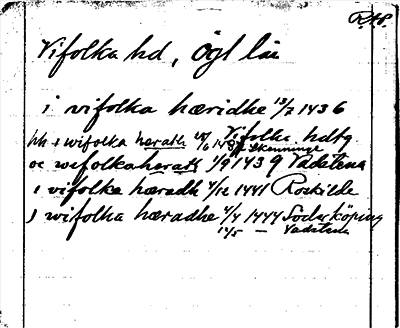 RAP.
Vifolka hd, Ögl län
i vifolka hæridhe 13/7 1436
Vifolka hdtg
hh i wifolka herath 1437 Skenninge
oc wifolkaherath 1/9 1439 Vadstena
i vifolke hæradh 4/12 1441 Roskilde
J wifolka hæradhe 4/4 1444 Söderköping
14/5 — Vadstena